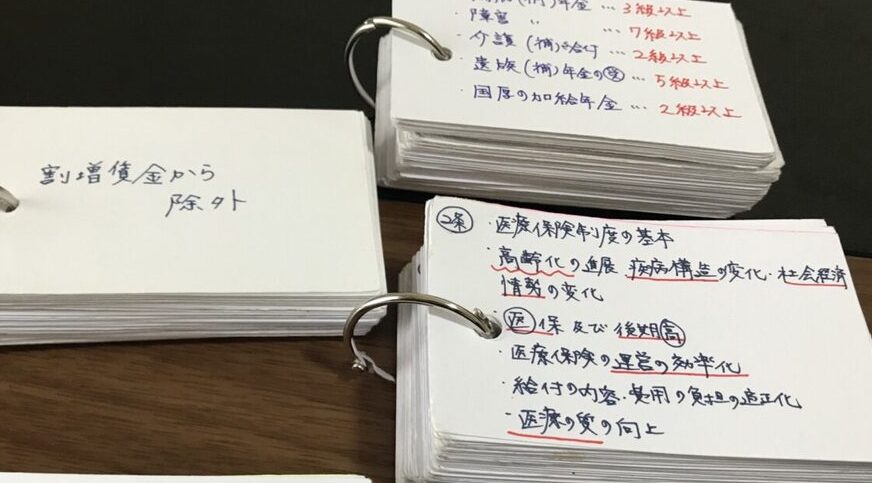 割増賃金から
除外
年金 … 3級以上
・障害 〃 … 7級以上
・介護(補)給付 … 2級以上
・遺族(補)年金の受 … 5級以上
・国厚の加給年金 … 2級以上
2条 ・医療保険制度の基本
・高齢化の進展 疾病構造の変化・社会経済
情勢の変化
・医保 及び 後期高
・医療保険の運営の効率化
・給付の内容・費用の負担の適正化
・医療の質の向上